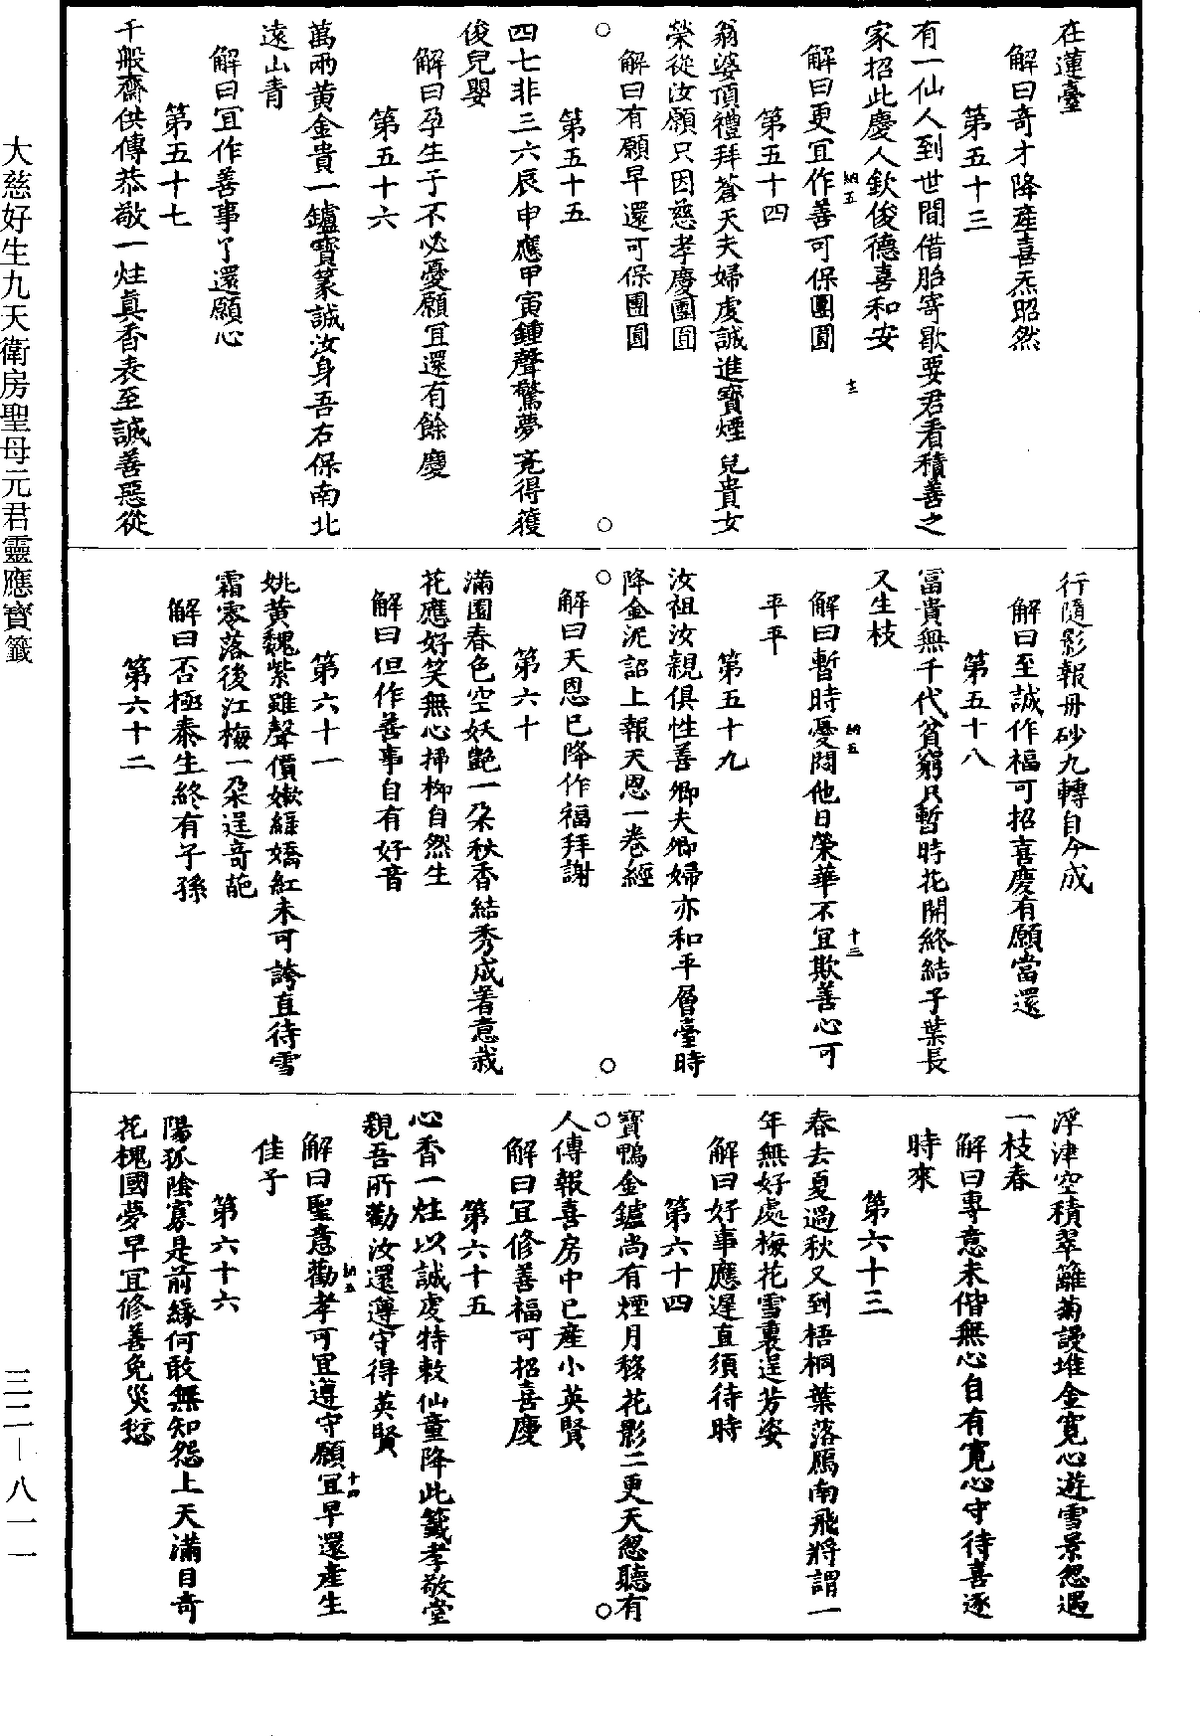 在蓮臺
解曰奇才降產喜炁昭然
第五十三
有一仙人到世間借胎寄歇要君看積善之
家招此慶人欽俊德喜和安
解曰更宜作善可保團圓
納五
十二
第五十四
翁婆頂禮拜蒼天夫婦虔誠進寶煙兒貴女
榮從汝願只因慈孝慶團圓
解曰有願早還可保團圓
第五十五
四七非三六辰申應甲寅鍾聲驚夢竟得獲
俊兒嬰
解曰孕生子不必憂願宜還有餘慶
第五十六
萬兩黃金貴一鑪寶篆誠汝身吾右保南北
遠山青
解曰宜作善事了還願心
第五十七
千般齋供傳恭敬一炷真香表至誠善惡從
行隨影報丹砂九轉自今成
解曰至誠作福可招喜慶有願當還
第五十八
富貴無千代貧窮只暫時花開終結子葉長
又生枝
解曰暫時憂悶他日榮華不宜欺善心可
納五
十三
平平
第五十九
汝祖汝親俱性善卿夫卿婦亦和平層臺時
降金泥詔上報天恩一卷經
解曰天恩已降作福拜謝
第六十
滿園春色空妖艷一朵秋香結秀成著意栽
花應好笑無心掃柳自然生
解曰但作善事自有好音
第六十一
姚黃魏紫雖聲價嫩綠嬌紅未可誇直待雪
霜零落後江梅一朵逞奇葩
解曰否極泰生終有子孫
第六十二
浮津空積翠籬菊謾堆金寬心遊雪景忽遇
一枝春
解曰專意未偕無心自有寬心守待喜逐
時來
第六十三
春去夏過秋又到梧桐葉落鴈南飛將謂一
年無好處梅花雪裏逞芳姿
解曰好事應遲直須待時
第六十四
寶鴨金鑪尚有煙月移花影二更天忽聽有
人傳報喜房中已產小英賢
解曰宜修善福可招喜慶
第六十五
心香一炷以誠虔特敕仙童降此籤孝敬堂
親吾所勸汝還遵守得英賢
解曰聖意勸孝可宜遵守願宜早還產生
納五
十四
佳子
第六十六
陽孤陰寡是前緣何敢無知怨上天滿目奇
花槐國夢早宜修善免災愆
大慈好生九天衛房聖母元君靈應寶籤
三二—八一一